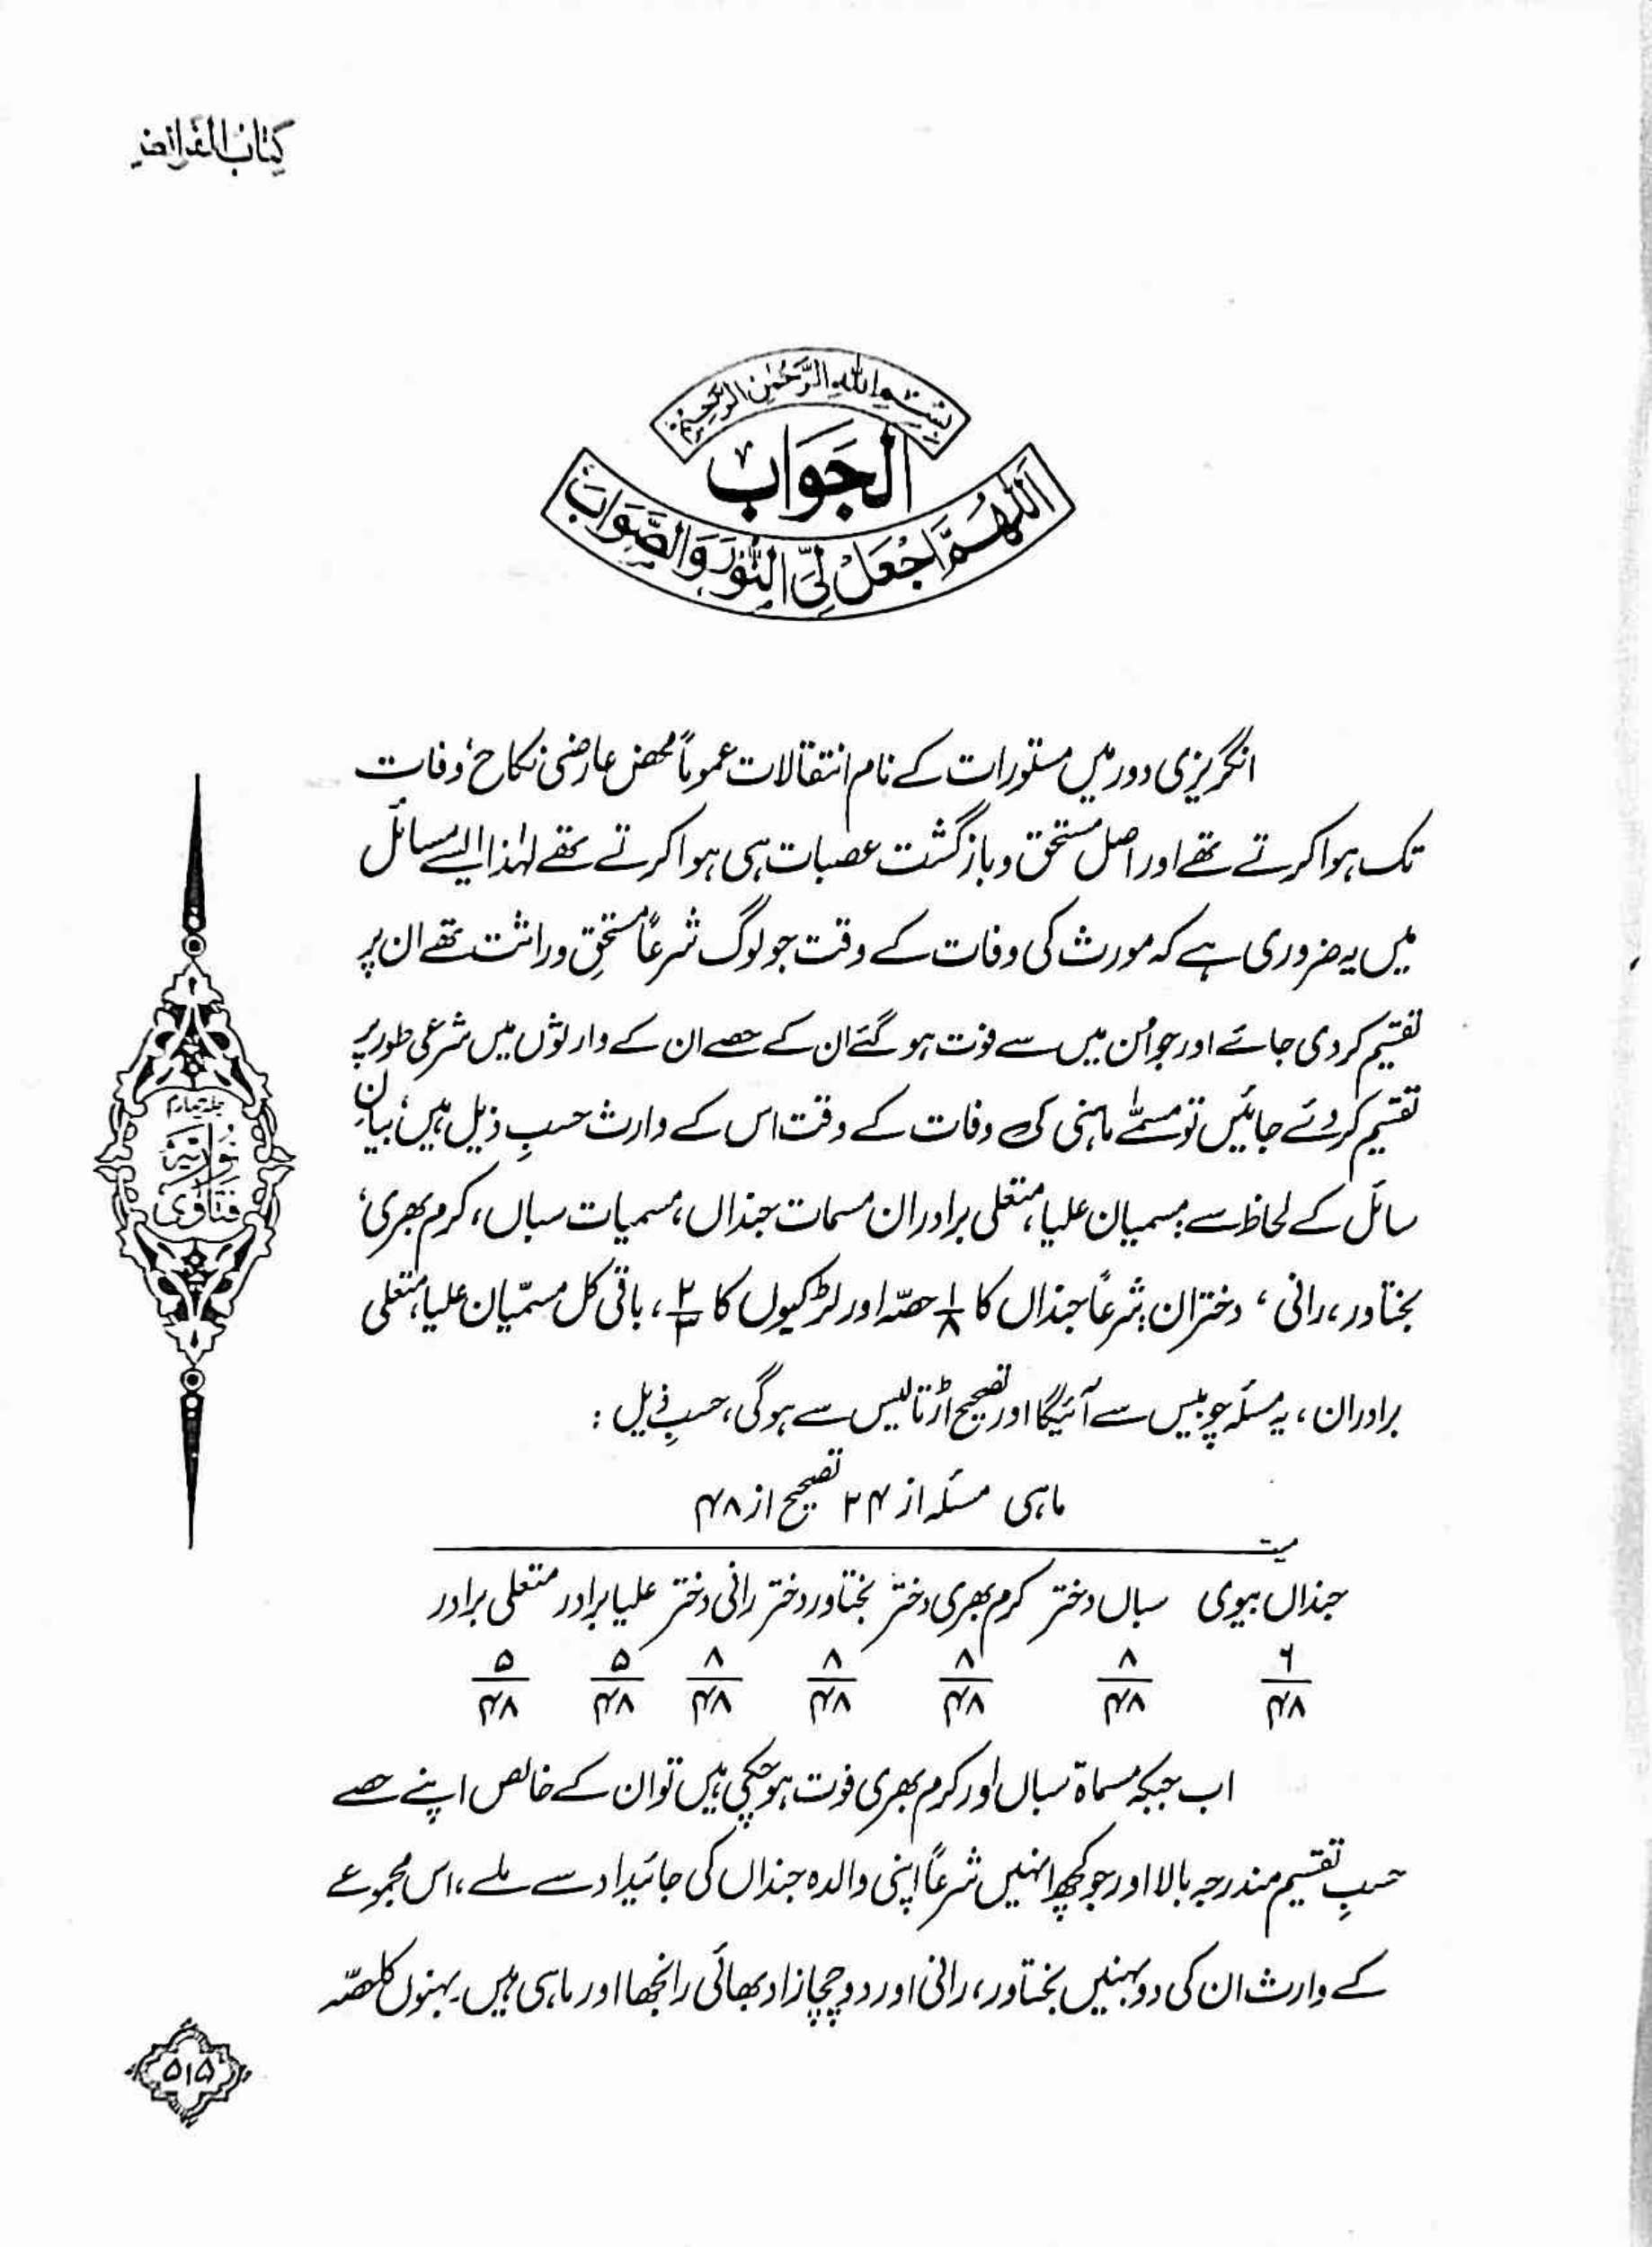 کتاب الفرائض
بِسْمِ اللهِ الرَّحْمٰنِ الرَّحِيْمِ
الجَوَابُ
اَللّٰهُمَّ اجْعَلْ لِّیَ النُّوْرَ وَالصَّوَابَ
انگریزی دور میں مستورات کے نام انتقالات عموماً محض عارضی نکاح، وفات
تک ہوا کرتے تھے اور اصل مستحق و بازگشت عصبات ہی ہوا کرتے تھے لہٰذا ایسے مسائل
میں یہ ضروری ہے کہ مورث کی وفات کے وقت جو لوگ شرعاً مستحقِ وراثت تھے ان پر
تقسیم کر دی جائے اور جو اُن میں سے فوت ہو گئے ان کے حصے ان کے وارثوں میں شرعی طور پر
تقسیم کر دئے جائیں تو مسمّٰے ماہنی کی وفات کے وقت اس کے وارث حسبِ ذیل ہیں، بیانِ
سائل کے لحاظ سے مسمیان علیا، متعلی برادران مسمات جنداں، مسمیات سباں، کرم بھری،
بختاور، رانی، دختران، شرعاً جنداں کا ۱/۸ حصّہ اور لڑکیوں کا ۲/۳، باقی کل مسمّیان علیا، متعلی
برادران، یہ مسئلہ چوبیس سے آئیگا اور تصحیح اڑتالیس سے ہوگی، حسبِ ذیل :
ماہی مسئلہ از ۲۴ تصحیح از ۴۸
میت
جنداں بیوی سباں دختر کرم بھری دختر بختاور دختر رانی دختر علیا برادر متعلی برادر
۶/۴۸ ۸/۴۸ ۸/۴۸ ۸/۴۸ ۸/۴۸ ۵/۴۸ ۵/۴۸
اب جبکہ مسماۃ سباں اور کرم بھری فوت ہو چکی ہیں تو ان کے خالص اپنے حصے
حسبِ تقسیم مندرجہ بالا اور جو کچھ انہیں شرعاً اپنی والدہ جنداں کی جائیداد سے ملے، اس مجموعے
کے وارث ان کی دو بہنیں بختاور، رانی اور دو چچازاد بھائی رانجھا اور ماہی ہیں۔ بہنوں کا حصّہ
جلد چہارم
نُوریّہ
فتاویٰ
۵۱۵